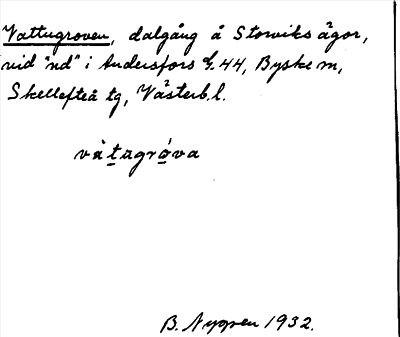 Vattugroven, dalgång å Storviks ägor,
vid "nd" i Andersfors 44, Byske m,
Skellefteå tg, Västerb. l.
våtagrova
B. Nygren 1932.